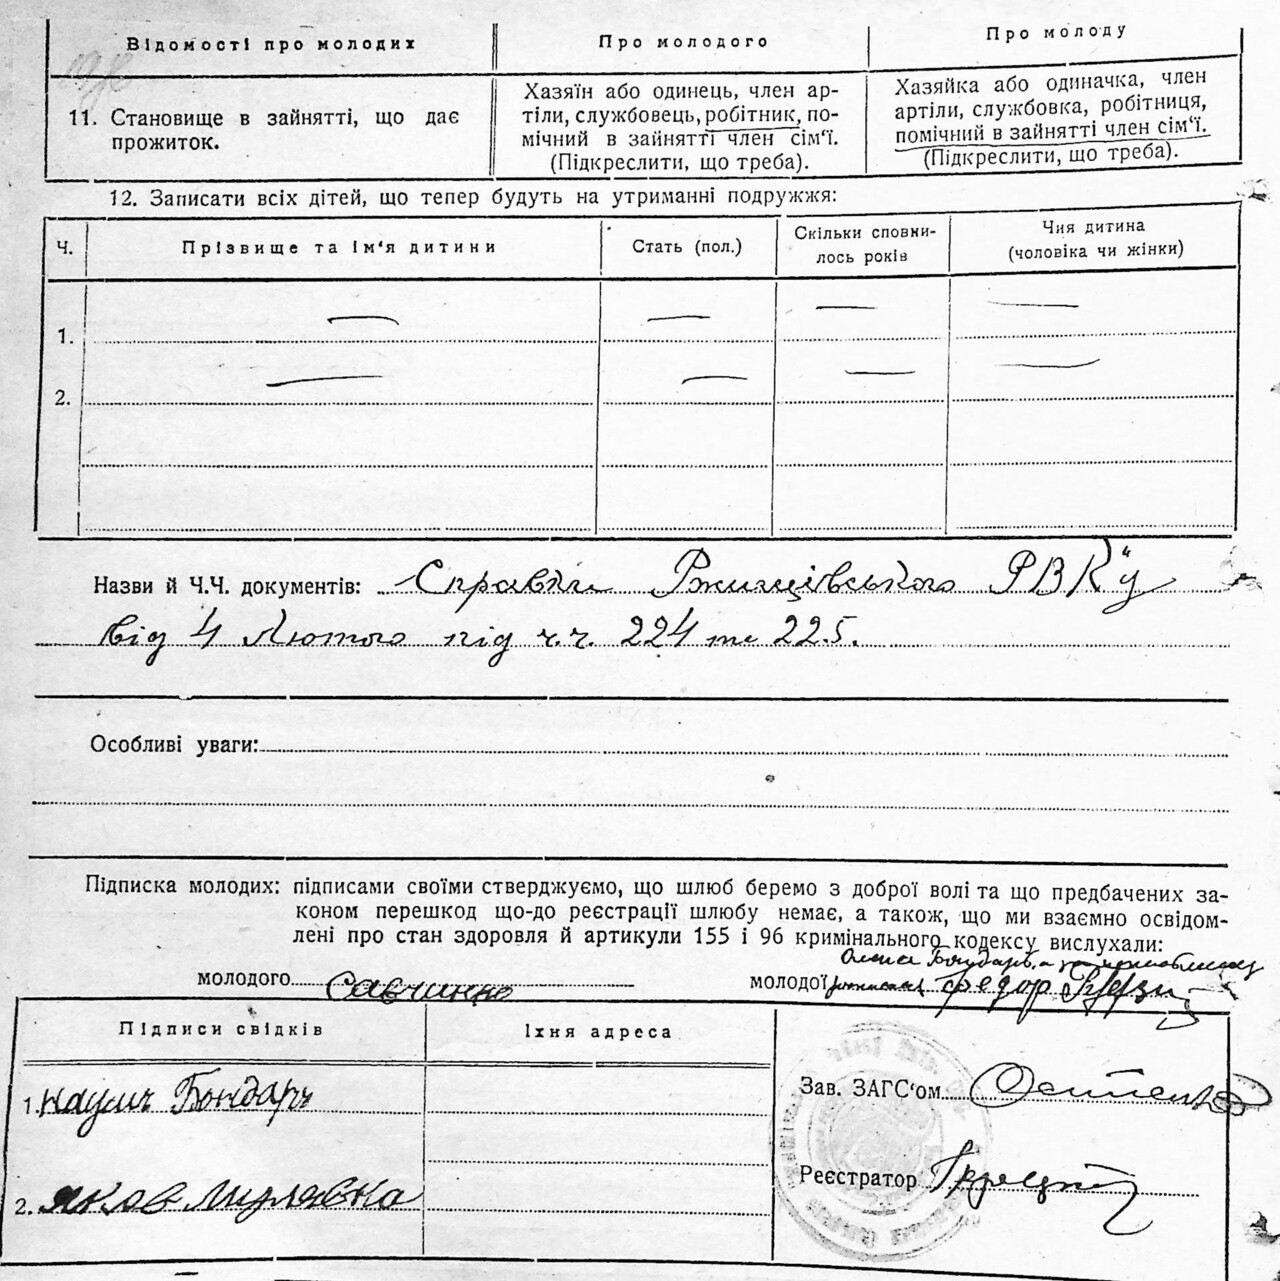 Відомості про молодих
Про молодого
Про молоду
11. Становище в зайнятті, що дає
прожиток.
Хазяїн або одинець, член ар-
тіли, службовець, робітник, по-
мічний в зайнятті член сім‘ї.
(Підкреслити, що треба).
Хазяйка або одиначка, член
артіли, службовка, робітниця,
помічний в зайнятті член сім‘ї.
(Підкреслити, що треба).
12. Записати всіх дітей, що тепер будуть на утриманні подружжя:
Ч.
Прізвище та ім‘я дитини
Стать (пол.)
Скільки сповни-
лось років
Чия дитина
(чоловіка чи жінки)
1.
2.
Назви й Ч.Ч. документів: Справки Ржищівського РВК"у
від 4 Лютого під ч.ч. 224 та 225.
Особливі уваги:
Підписка молодих: підписами своїми стверджуємо, що шлюб беремо з доброї волі та що предбачених за-
коном перешкод що-до реєстрації шлюбу немає, а також, що ми взаємно освідом-
лені про стан здоровля й артикули 155 і 96 кримінального кодексу вислухали:
молодого Савченко
Бондарь, а
молодої Федор
Підписи свідків
Їхня адреса
1. Наум Бондарь
2. Яков
Зав. ЗАГС‘ом
Реєстратор